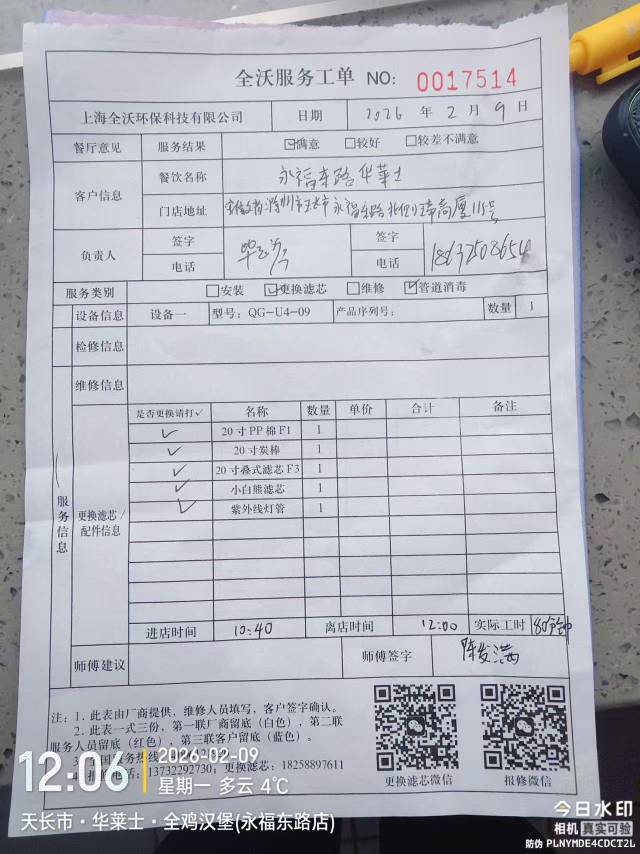 全沃服务工单 NO: 0017514
上海全沃环保科技有限公司 日期 2026 年 2 月 9 日
餐厅意见 服务结果 ☑满意 □较好 □较差不满意
客户信息 餐饮名称 永福东路华莱士
门店地址 安徽省滁州市天长市永福东路北侧
负责人 签字 签字
电话 电话 18637508654
服务类别 □安装 ☑更换滤芯 □维修 ☑管道消毒
设备信息 设备一 型号: QG-U4-09 产品序列号: 数量 1
检修信息
维修信息
服务信息
更换滤芯/配件信息
是否更换请打✓ 名称 数量 单价 合计 备注
✓ 20寸PP棉F1 1
✓ 20寸炭棒 1
✓ 20寸叠式滤芯F3 1
✓ 小白熊滤芯 1
✓ 紫外线灯管 1
进店时间 10:40 离店时间 12:00 实际工时 80分钟
师傅建议 师傅签字
注: 1、此表由厂商提供，维修人员填写，客户签字确认。
2、此表一式三份，第一联厂商留底（白色），第二联
服务人员留底（红色），第三联客户留底（蓝色）。
13732292730; 更换滤芯: 18258897611
更换滤芯微信 报修微信
12:06 2026-02-09
星期一 多云 4℃
天长市·华莱士·全鸡汉堡(永福东路店)
今日水印
相机 真实可验
防伪 PLNYMDE4CDCT2L